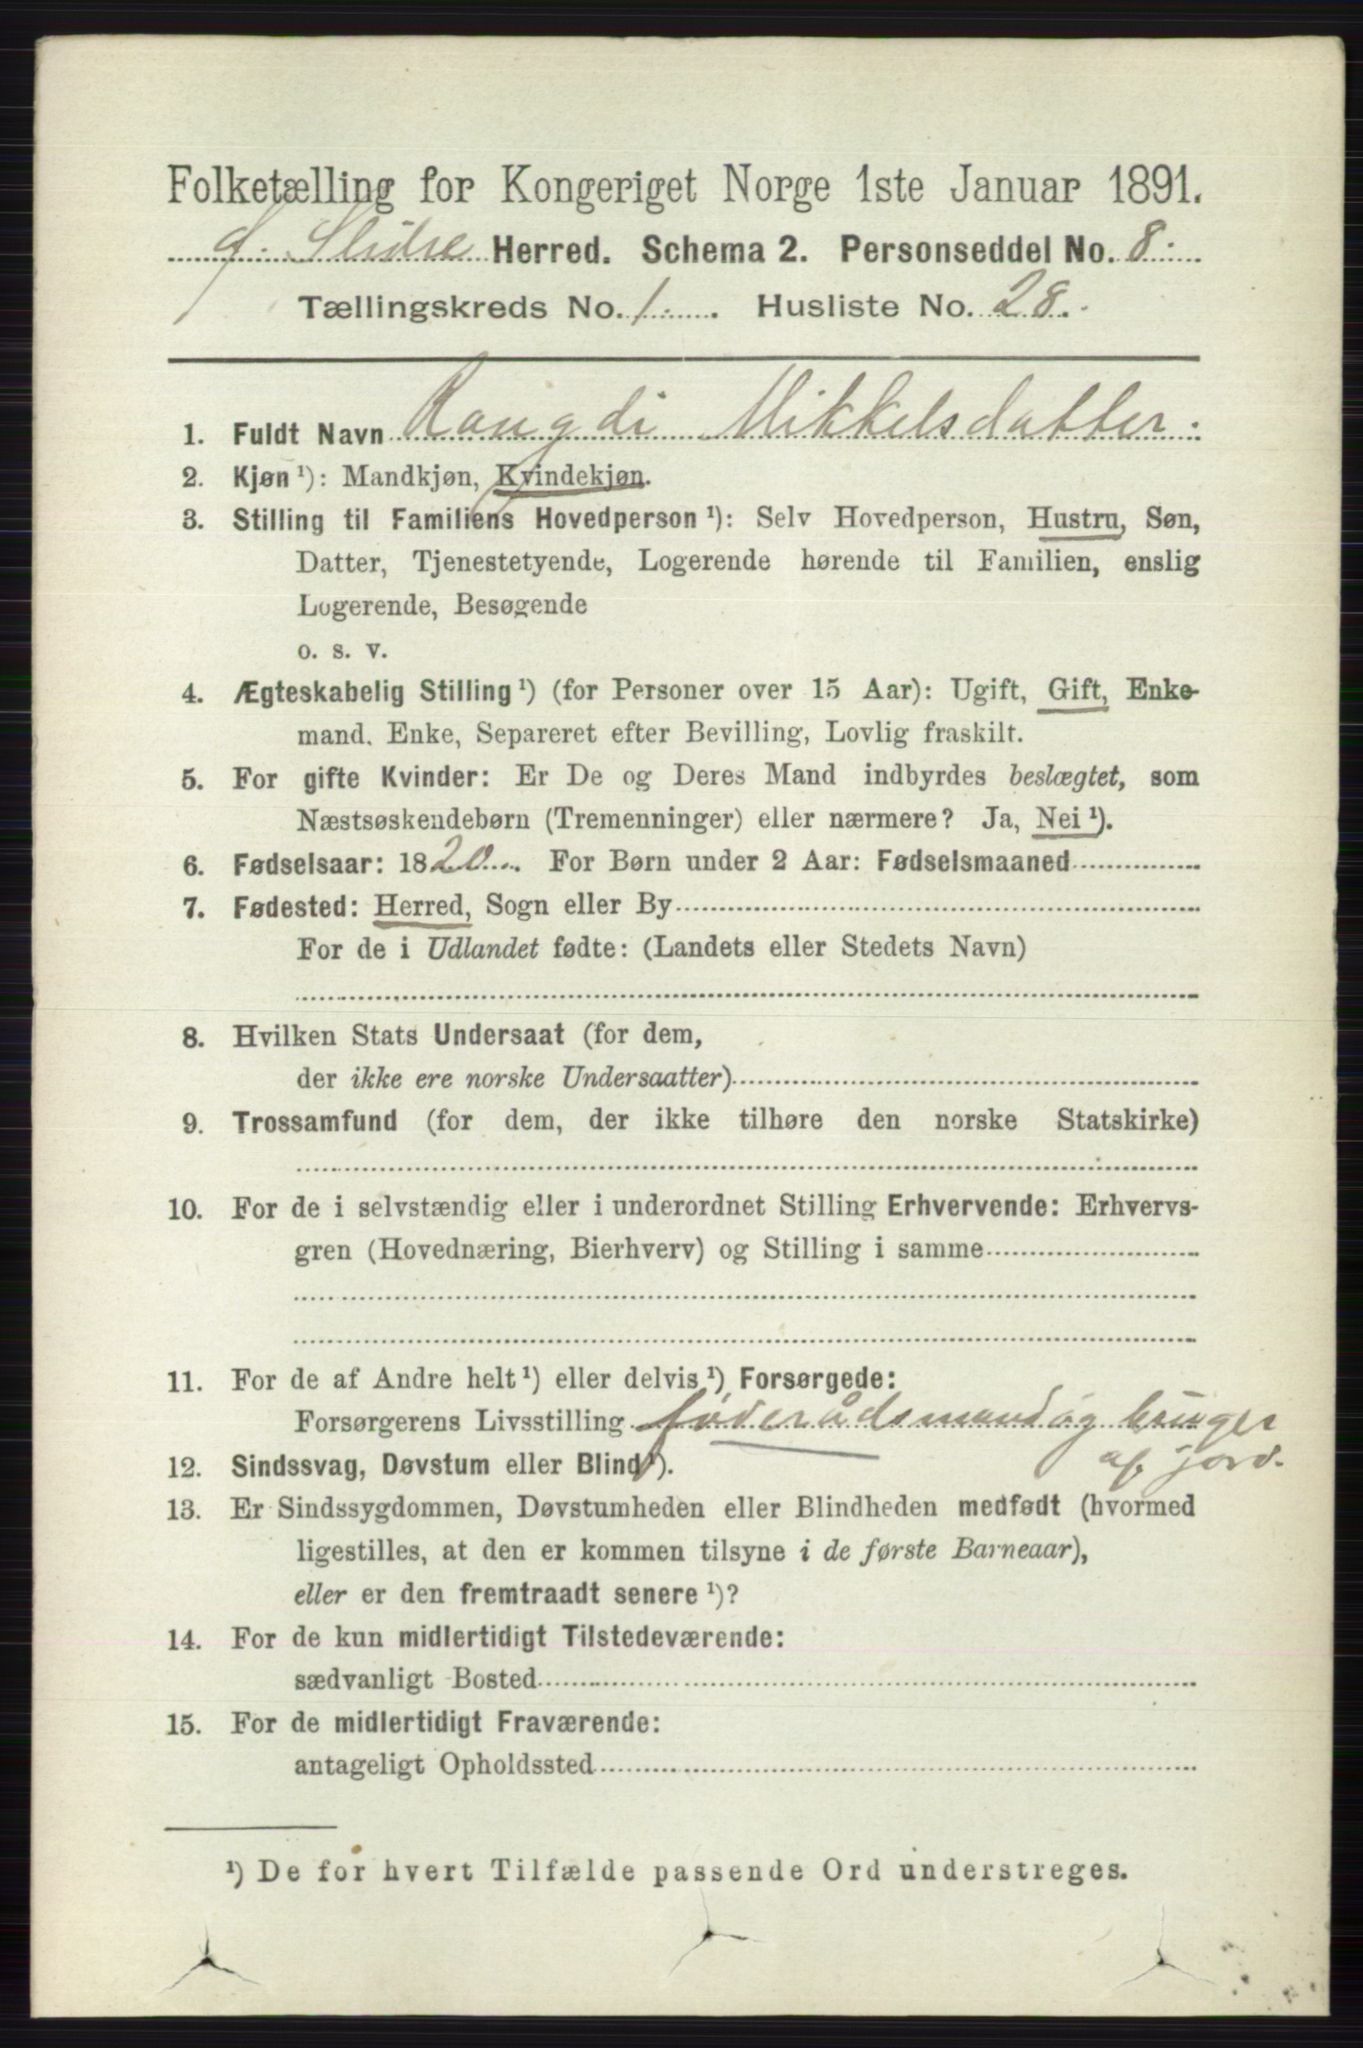 Folketælling for Kongeriget Norge 1ste Januar 1891.
Slidre Herred. Schema 2. Personseddel No. 8.
Tællingskreds No. 1. Husliste No. 28.
1. Fuldt Navn Rangdi Mikkelsdatter.
2. Kjøn ¹): Mandkjøn, Kvindekjøn.
3. Stilling til Familiens Hovedperson ¹): Selv Hovedperson, Hustru, Søn,
Datter, Tjenestetyende, Logerende hørende til Familien, enslig
Logerende, Besøgende
o. s. v.
4. Ægteskabelig Stilling ¹) (for Personer over 15 Aar): Ugift, Gift, Enke-
mand, Enke, Separeret efter Bevilling, Lovlig fraskilt.
5. For gifte Kvinder: Er De og Deres Mand indbyrdes beslægtet, som
Næstsøskendebørn (Tremenninger) eller nærmere? Ja, Nei ¹).
6. Fødselsaar: 1820. For Børn under 2 Aar: Fødselsmaaned
7. Fødested: Herred, Sogn eller By
For de i Udlandet fødte: (Landets eller Stedets Navn)
8. Hvilken Stats Undersaat (for dem,
der ikke ere norske Undersaatter)
9. Trossamfund (for dem, der ikke tilhøre den norske Statskirke)
10. For de i selvstændig eller i underordnet Stilling Erhvervende: Erhvervs-
gren (Hovednæring, Bierhverv) og Stilling i samme
11. For de af Andre helt ¹) eller delvis ¹) Forsørgede:
Forsørgerens Livsstilling føderådsmand og bruger
af jord.
12. Sindssvag, Døvstum eller Blind ¹).
13. Er Sindssygdommen, Døvstumheden eller Blindheden medfødt (hvormed
ligestilles, at den er kommen tilsyne i de første Barneaar),
eller er den fremtraadt senere ¹)?
14. For de kun midlertidigt Tilstedeværende:
sædvanligt Bosted
15. For de midlertidigt Fraværende:
antageligt Opholdssted
¹) De for hvert Tilfælde passende Ord understreges.